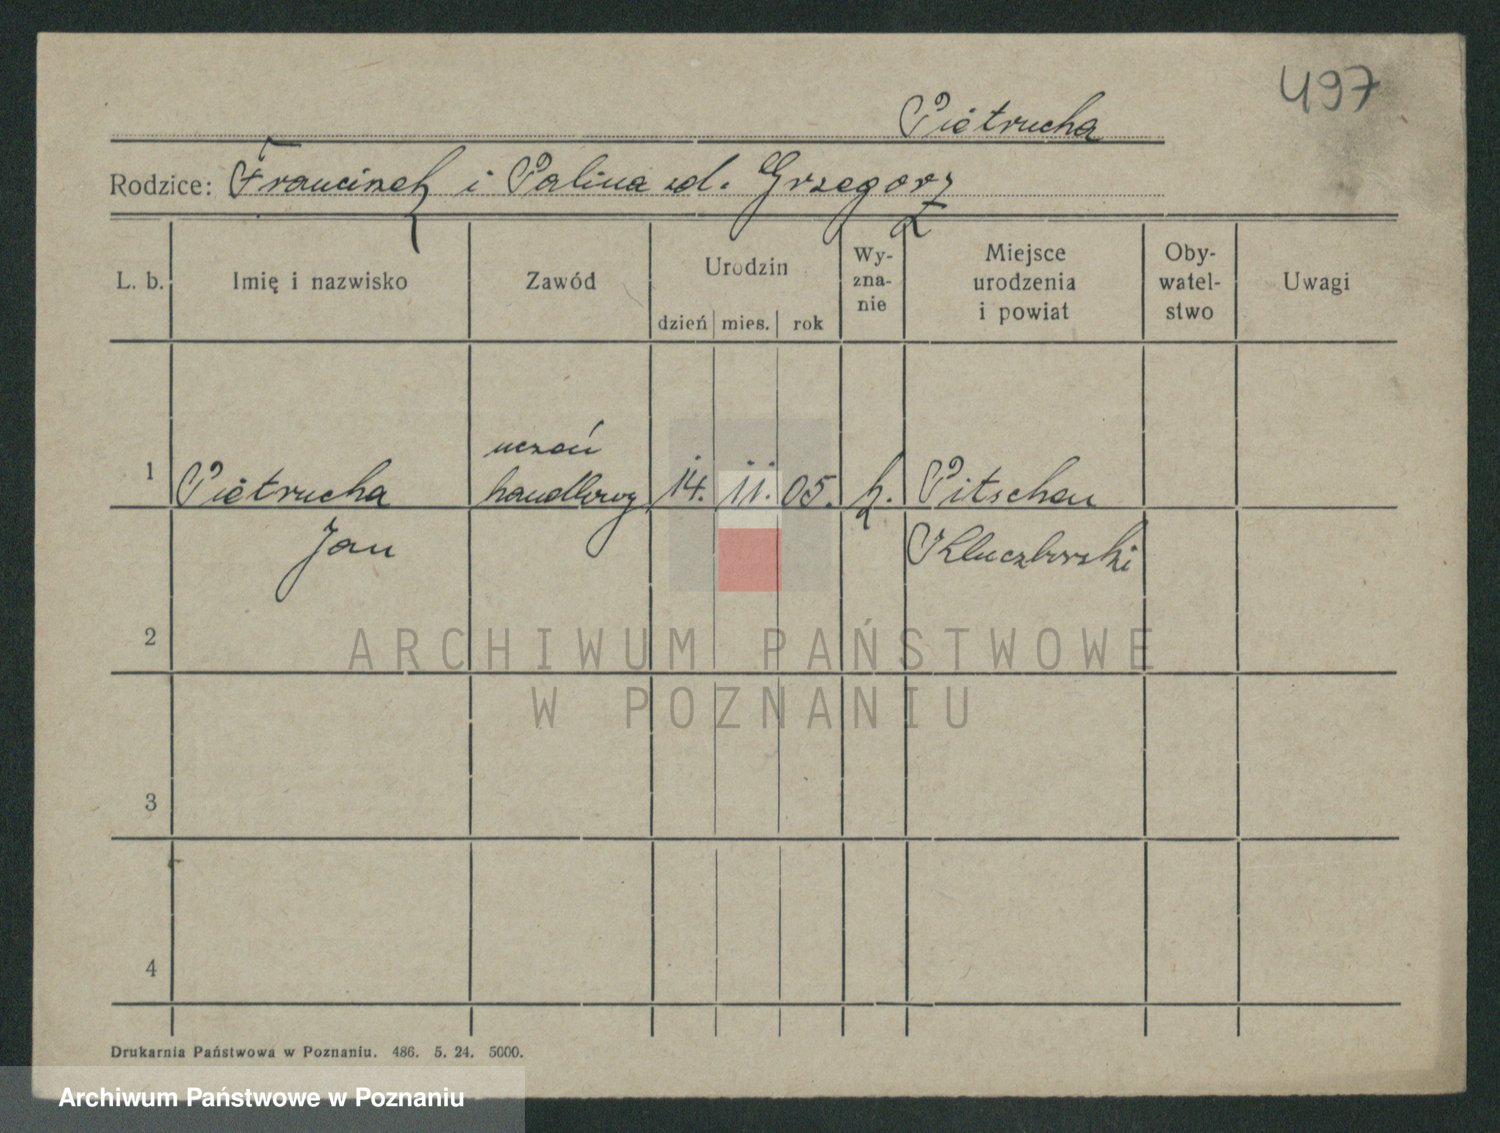 497
Pietrucha
Rodzice: Francizek i Palina zd. Grzegorz
L. b. Imię i nazwisko Zawód Urodzin dzień mies. rok Wy-zna-nie Miejsce urodzenia i powiat Oby-watel-stwo Uwagi
uczeń
1 Pietrucha handlowy 14. 11. 05. k. Pitschen
Jan Kluczborski
2
ARCHIWUM PAŃSTWOWE
W POZNANIU
3
4
Drukarnia Państwowa w Poznaniu. 486. 5. 24. 5000.
Archiwum Państwowe w Poznaniu